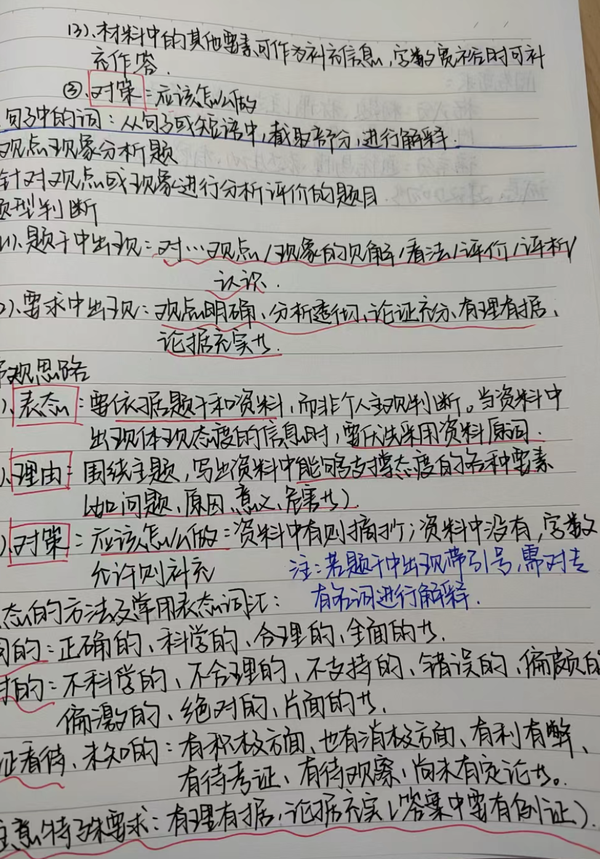 (3).材料中的其他要素可作为补充信息,字数宽裕时可补
充作答.
③.对策:应该怎么做的
句子中的词:从句子或短语中,截取部分,进行解释.
观点现象分析题
针对观点或现象进行分析评价的题目
题型判断
(1).题干中出现:对…观点/现象的见解/看法/评价/评析/
认识.
2).要求中出现:观点明确、分析透彻、论证充分、有理有据、
论据充实等.
观思路
).表态:要依据题干和资料,而非个人主观判断。当资料中
出现体现态度的信息时,要依法采用资料原词.
).理由:围绕主题,写出资料中能够支撑态度的各种要素
(如问题、原因、意义、危害等)
).对策:应该怎么做:资料中有则摘抄;资料中没有,字数
允许则补充
注:若题干中出现带引号,需对专
有名词进行解释.
态的方法及常用表态词汇:
同的:正确的、科学的、合理的、全面的等.
对的:不科学的、不合理的、不支持的、错误的、偏颇的
偏激的、绝对的、片面的等.
证看待、未知的:有积极方面、也有消极方面、有利有弊、
有待考证、有待观察、尚未有定论等。
注意特殊要求:有理有据、论据充实(答案中要有例证).